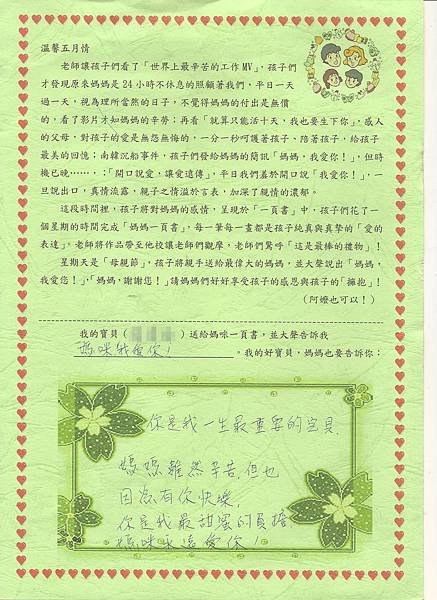 溫馨五月情
老師讓孩子們看了「世界上最辛苦的工作MV」，孩子們
才發現原來媽媽是24小時不休息的照顧著我們，平日一天
過一天，視為理所當然的日子，不覺得媽媽的付出是無價
的，看了影片才知媽媽的辛勞；再看「就算只能活十天，我也要生下你」，感人
的父母，對孩子的愛是無怨無悔的，一分一秒呵護著孩子、陪著孩子，給孩子
最美的回憶；南韓沉船事件，孩子們發給媽媽的簡訊「媽媽，我愛你！」，但時
機已晚……，；「開口說愛，讓愛遠傳」，平日我們羞於開口說「我愛你！」，一
旦說出口，真情流露，親子之情溢於言表，加深了親情的濃郁。
這段時間裡，孩子將對媽媽的感情，呈現於「一頁書」中，孩子們花了一
個星期的時間完成「媽媽一頁書」，每一筆每一畫都是孩子純真與真摯的「愛的
表達」。老師將作品帶至他校讓老師們觀摩，老師們驚呼「這是最棒的禮物」！
星期天是「母親節」，孩子將親手送給最偉大的媽媽，並大聲說出「媽媽，
我愛您！」，「媽媽，謝謝您！」請媽媽們好好享受孩子的感恩與孩子的「擁抱」！
（阿嬤也可以！）
我的寶貝（　　　）送給媽咪一頁書，並大聲告訴我
媽咪我愛你！。我的好寶貝，媽媽也要告訴你：
你是我一生最重要的宝貝.
媽媽雖然辛苦.但也
因為有你快樂.
你是我最甜蜜的負擔
媽咪永遠愛你！